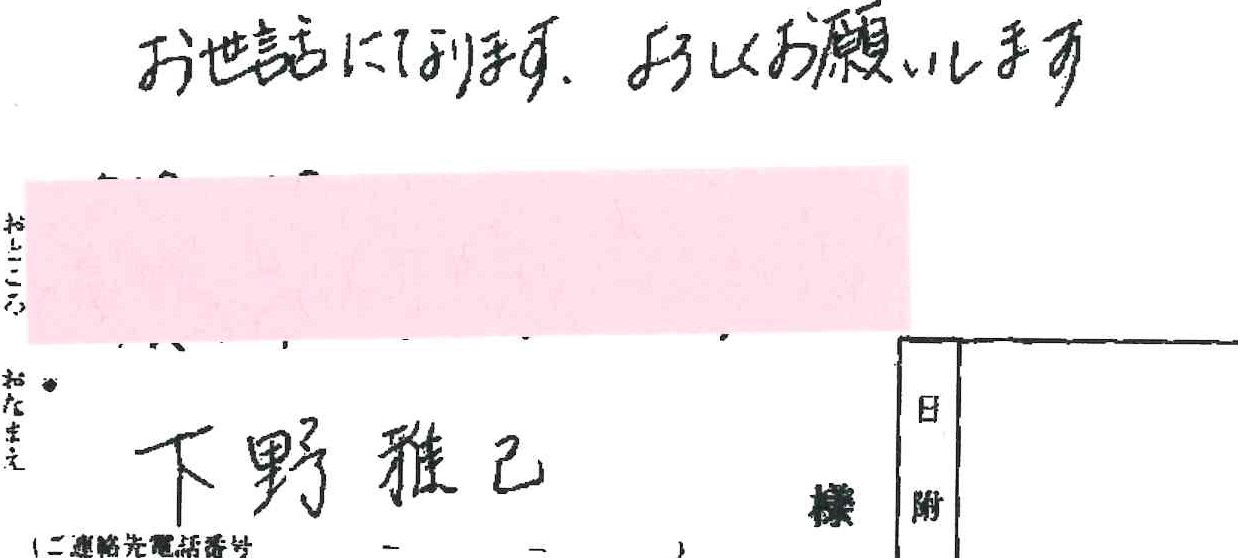 お世話になります、よろしくお願いします
おところ
おなまえ
下野 雅己
様
日附
(ご連絡先電話番号 − − )